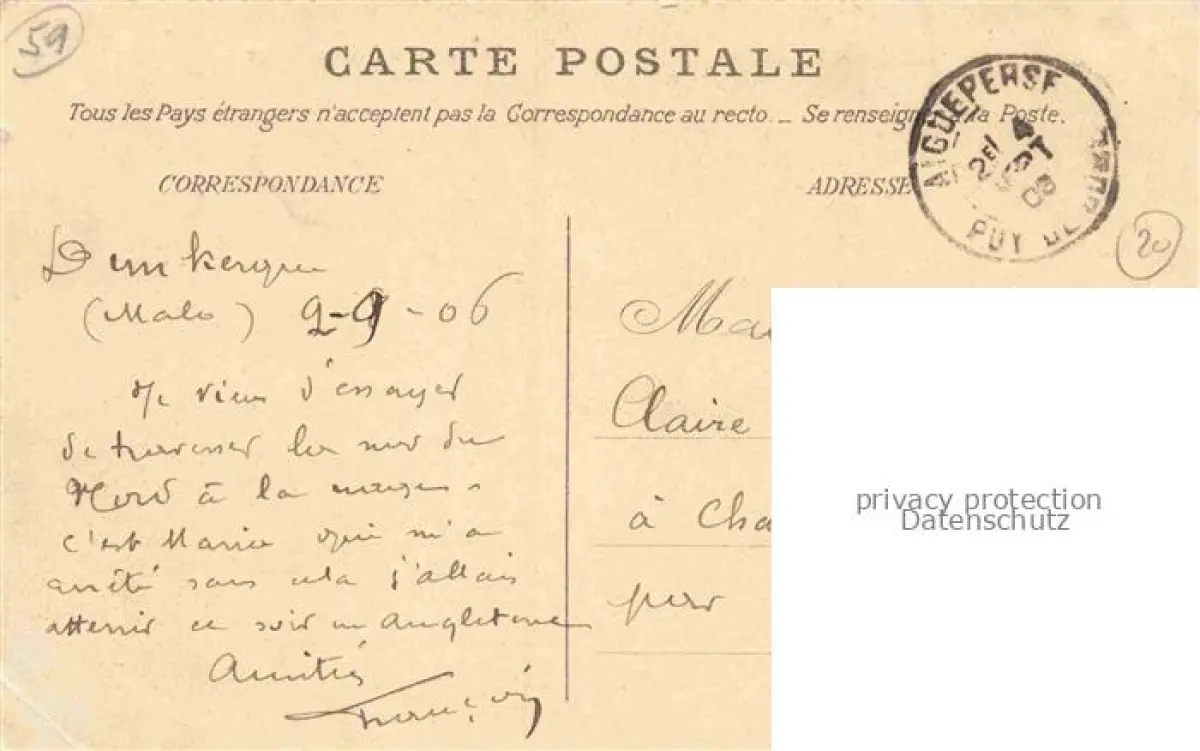 59
CARTE POSTALE
Tous les Pays étrangers n'acceptent pas la Correspondance au recto. _ Se renseign la Poste.
AIGUEPERSE
2E 4
SEPT
06
PUY DE DOME
CORRESPONDANCE
ADRESSE
20
Dunkerque
(Malo) 2-9-06
Je viens d'essayer
de traverser la mer du
Nord à la nage
c'est Marie qui m'a
arrêté sans cela j'allais
atterrir ce soir en Angleterre
Amitiés
François
Ma
Claire
à Cha
par
privacy protection
Datenschutz